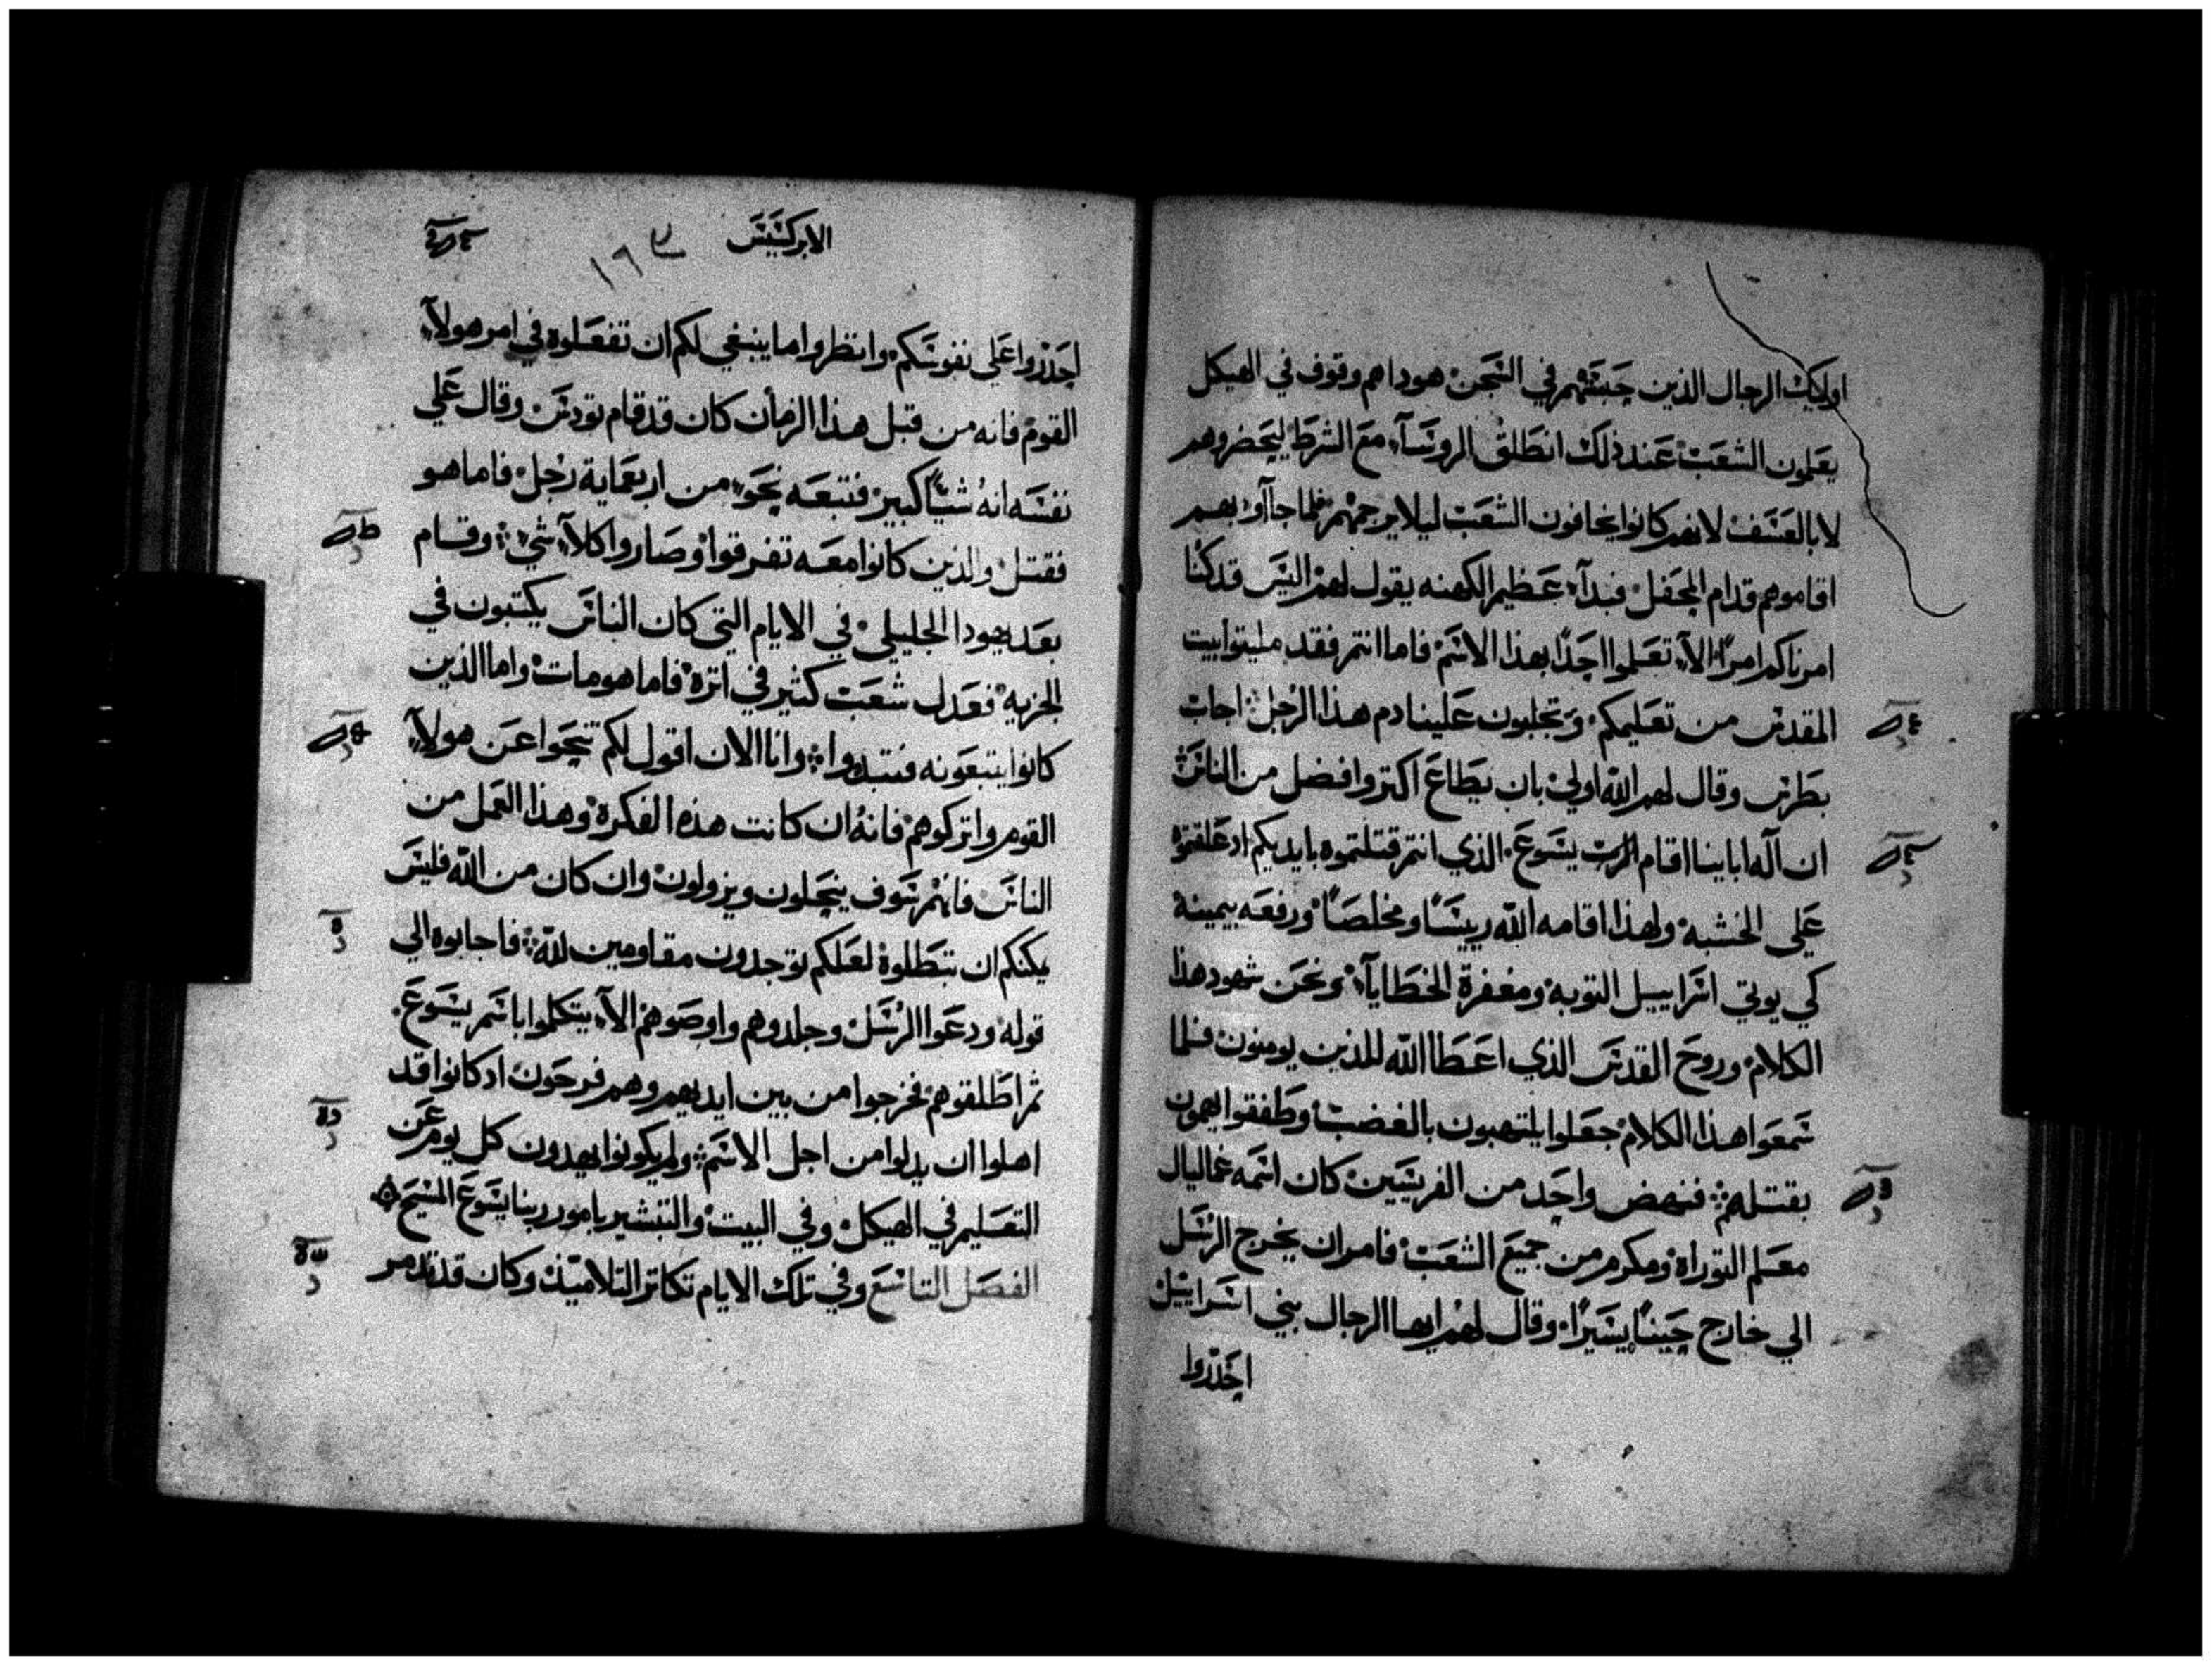 اوليك الرجال الذين حبستهم في السجن هوداهم وقوف في الهيكل
يعلمون الشعب عند ذلك انطلق الروسآء مع الشرط ليحضروهم
لا بالعسف لانهم كانوا يخافون الشعب ليلا يرجمهم فلما جآاو بهم
اقاموهم قدام المحفل فبدآء عظيم الكهنه يقول لهم اليس قد كنا
امرناكم امرًا الآء تعلموا احدًا بهذا الاسم فاما انتم فقد مليتوا بيت
المقدس من تعليمكم وتجلبون علينا دم هذا الرجل اجاب
بطرس وقال لهم الله اولي بان يطاع اكتر وافضل من الناس
ان آله اباينا اقام الرب يسوع الذي انتم قتلتموه بايديكم اد علقتموه
علي الخشبه ولهذا اقامه الله رييسًا ومخلصًا ورفعه بيمينه
كي يوتي اسراييل التوبه ومغفرة الخطايآء ونحن شهود هذا
الكلام وروح القدس الذي اعطا الله للذين يومنون فلما
سمعوا هذا الكلام جعلوا يلتهبون بالغضب وطفقوا يهمون
بقتلهم فنهض واحد من الفريسيين كان اسمه غماليال
معلم التوراه ومكرم من جميع الشعب فامر ان يخرج الرسل
الي خارج حينًا يسيرًا وقال لهم ايها الرجال بني اسراييل
احدروا
الابركسيس
١٦٣
احدروا علي نفوسكم وانظروا ما ينبغي لكم ان تفعلوه في امر هولآء
القوم فانه من قبل هذا الزمان كان قد قام تودس وقال علي
نفسه انه شيًا كبير فتبعه نحو من اربعماية رجل فاما هو
فقتل والذين كانوا معه تفرقوا وصاروا كلآء شي وقام
بعد يهودا الجليلي في الايام التي كان الناس يكتبون في
الجزيه فعدل شعب كثير في اتره فاما هو مات واما الذين
كانوا يتبعونه فتبددوا وانا الان اقول لكم تنحوا عن هولآء
القوم واتركوهم فانه ان كانت هذه الفكره وهذا العمل من
الناس فانهم سوف ينحلون ويزولون وان كان من الله فليس
يمكنكم ان تبطلوه لعلكم توجدون مقاومين لله فاجابوه الي
قوله ودعوا الرسل وجلدوهم واوصوهم الآء يتكلموا باسم يسوع
ثم اطلقوهم فخرجوا من بين ايديهم وهم فرحون اد كانوا قد
اهلوا ان يدلوا من اجل الاسم ولم يكونوا يهدون كل يوم عن
التعليم في الهيكل وفي البيت والتبشير بامور ربنا يسوع المسيح
الفصل التاسع وفي تلك الايام تكاتر التلاميذ وكان قد تدمر